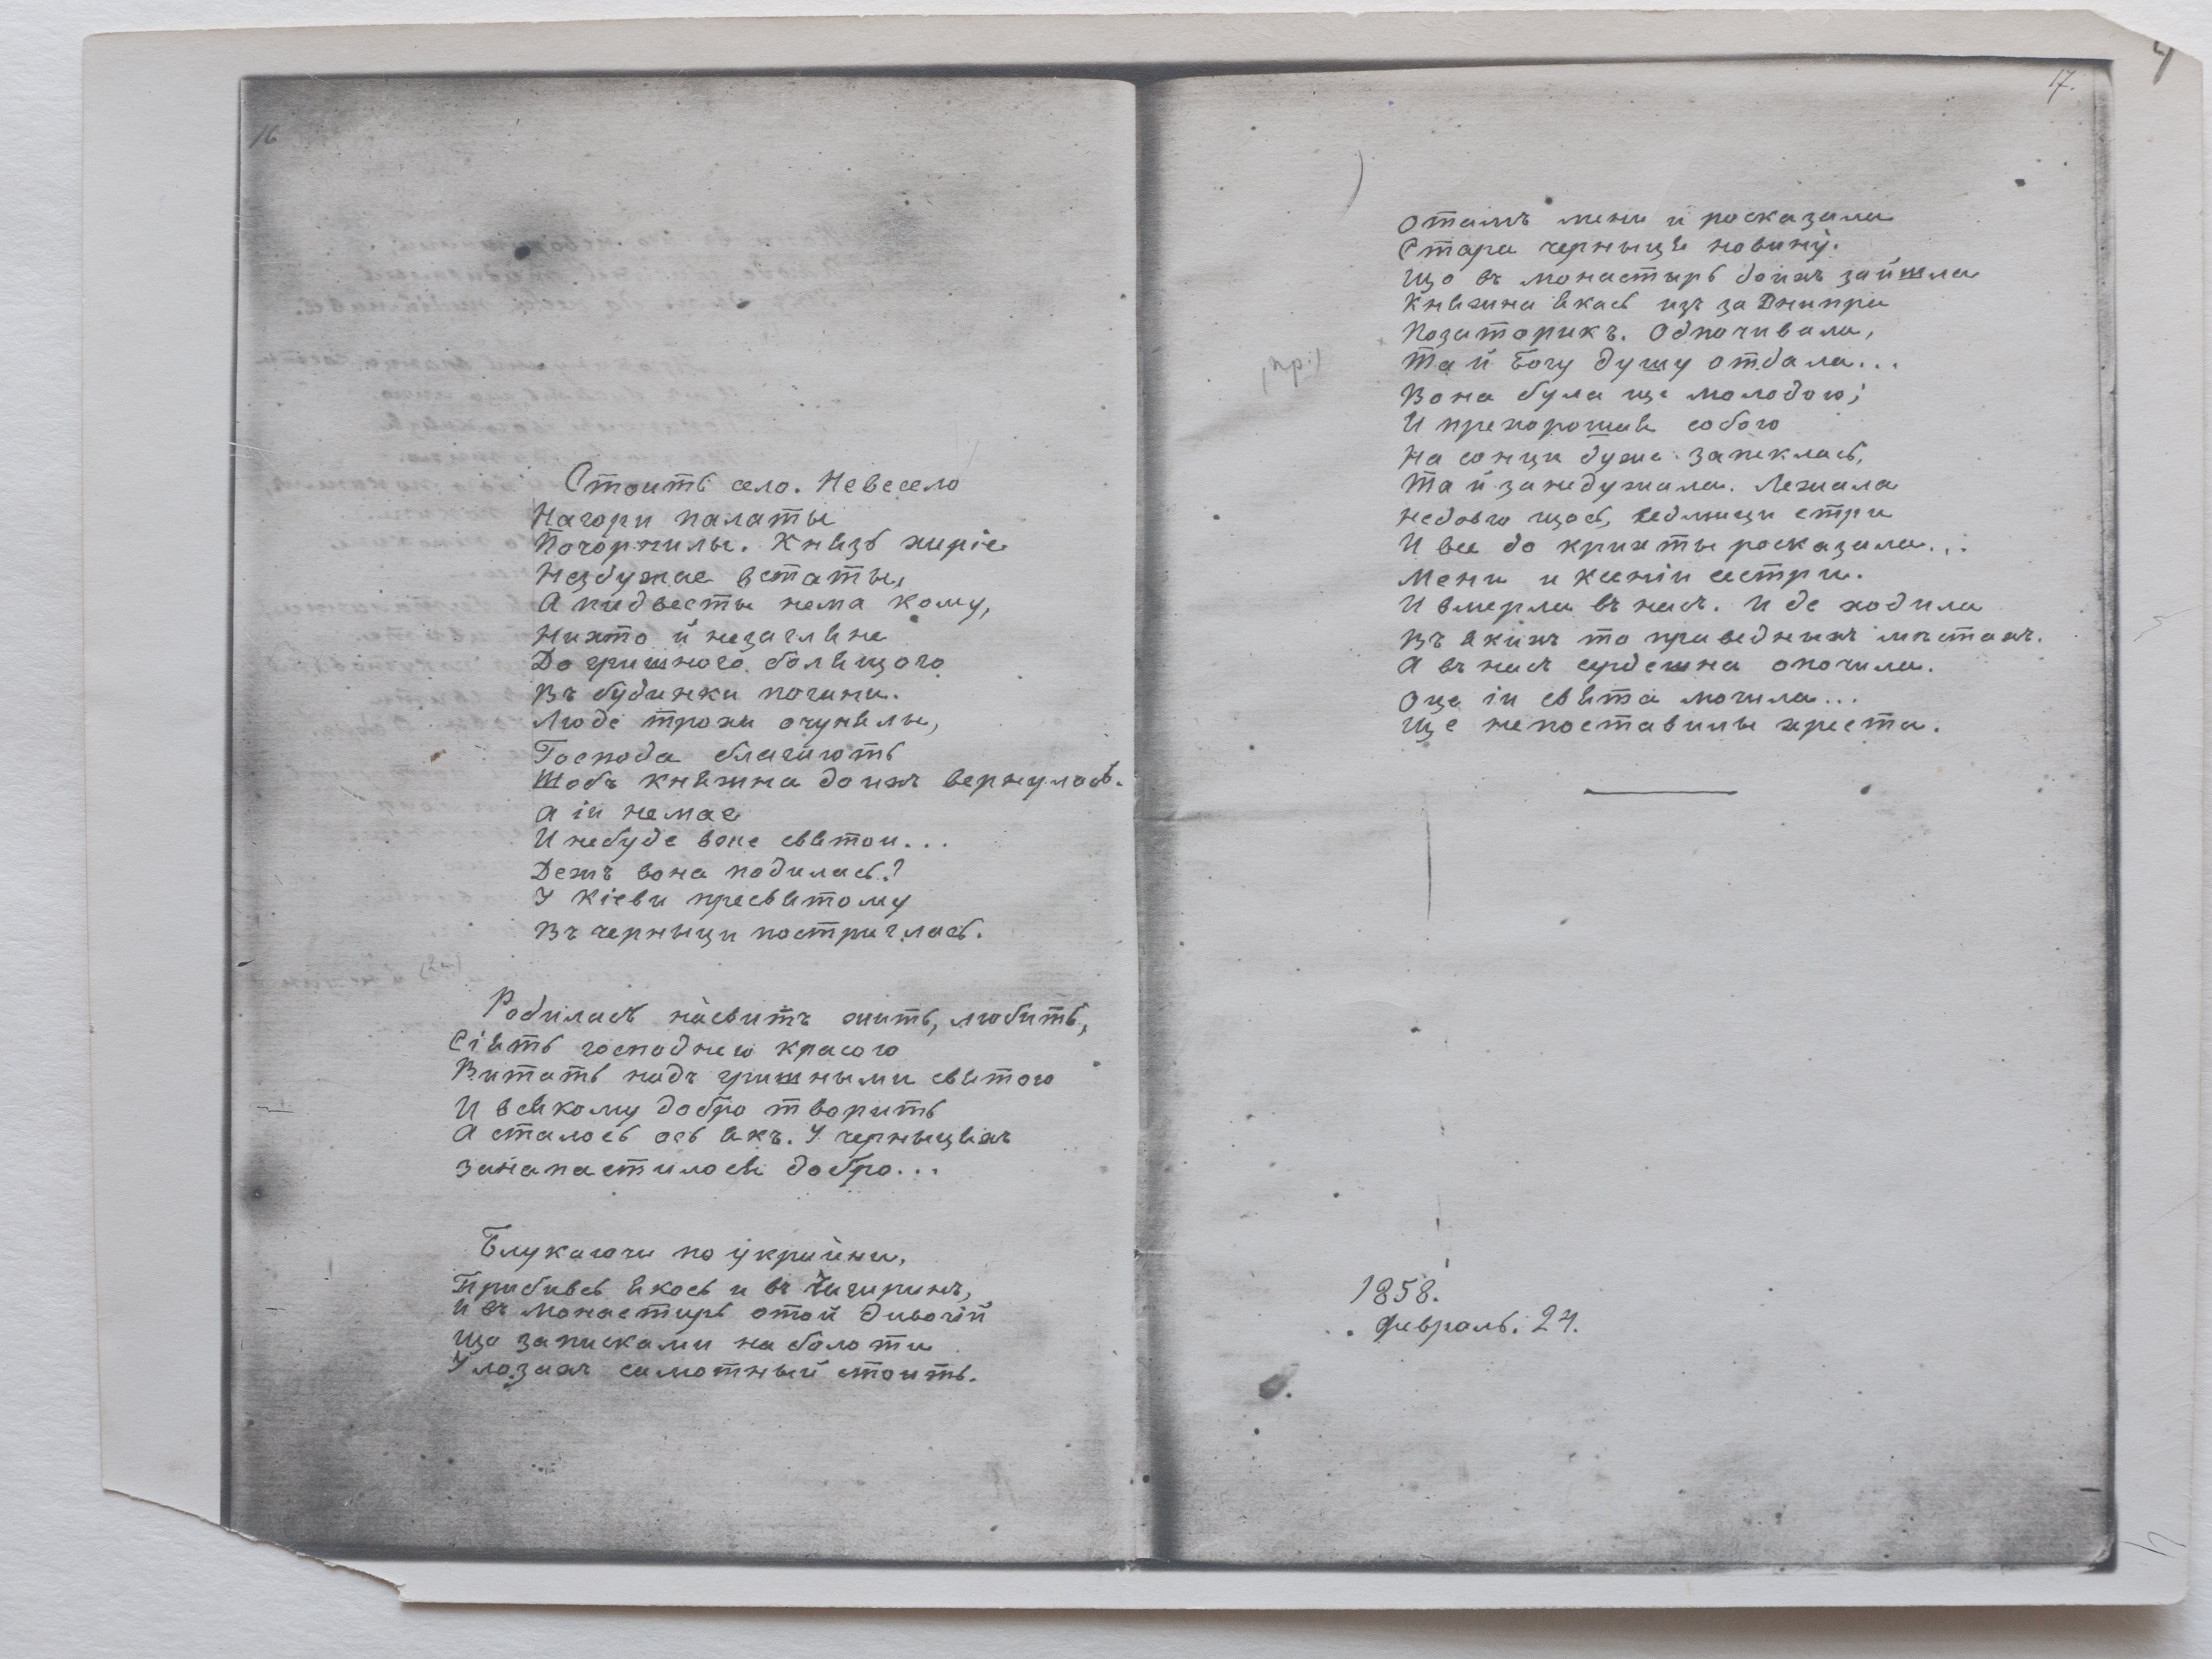 16
Стоить село. Невесело
Нагори палаты
Почорнилы. Князь хиріє
Нездужае встаты,
А пидвесты нема кому,
Нихто й незагляне
До гришного болящого
Въ будинки погани.
Люде трохи очунялы,
Господа благають
Щобъ княжна доихъ вернулась.
А іи немае
И небуде вже святои...
Дежъ вона подилась?
У Кіеви пресвятому
Въ черныци постриглась.
Родилась насвитъ жить, любить,
Сіять господнею красою
Витать надъ гришными святою
И всякому добро творить
А сталось ось якъ. У черныцяхъ
Занапастилося добро...
Блукаючи по украйни,
Прибивсь якось и въ Чигиринъ,
И въ монастирь отой дивочій
Що записками на болоти
У лозахъ самотный стоить.
17.
Отамъ мени и росказала
Стара черныця новину.
Що въ монастирь доихъ зайшла
Княжна якась изъ за Днипра
Позаторикъ. Одпочивала,
Та й Богу душу отдала...
Вона була ще молодою;
И прехорошая собою
На сонци дуже запеклась,
Та й занедужала. Лежала
Недовго щось, седмици стри
И все до крихты росказала...
Мени и Ксеніи сестри.
И вмерла въ насъ. И де ходила
Въ якихъ то праведныхъ мѣстахъ.
А въ насъ сердешна опочила.
Оце іи свята могила...
Ще непоставилы хреста.
(пр.)
1858.
Февраль. 24.
4